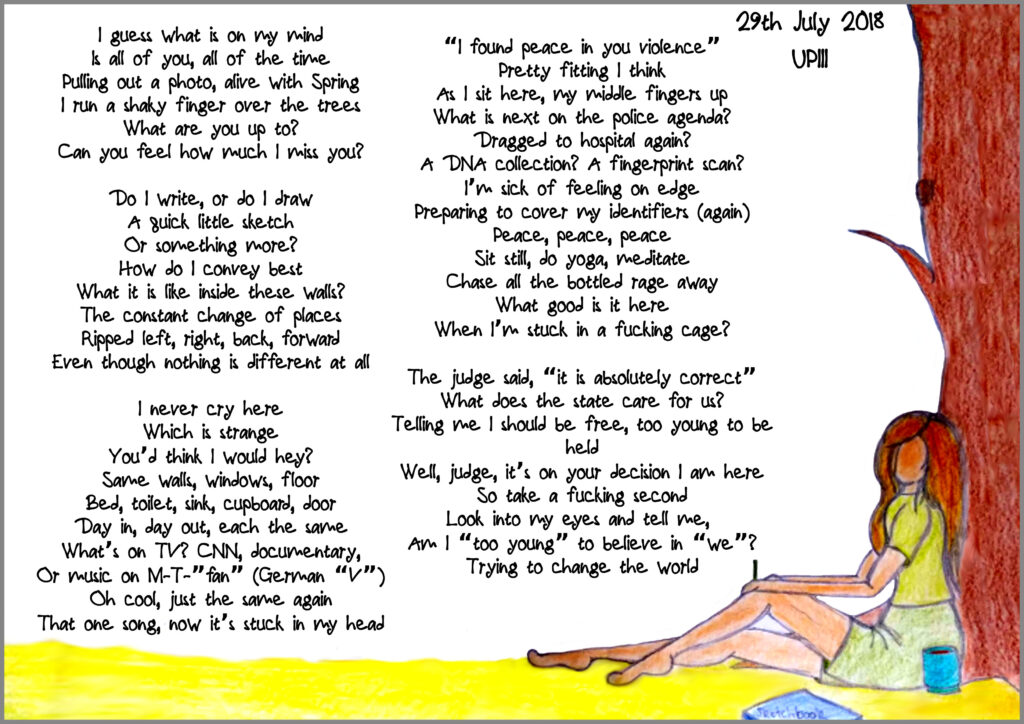 I guess what is on my mind
Is all of you, all of the time
Pulling out a photo, alive with Spring
I run a shaky finger over the trees
What are you up to?
Can you feel how much I miss you?
Do I write, or do I draw
A quick little sketch
Or something more?
How do I convey best
What it is like inside these walls?
The constant change of places
Ripped left, right, back, forward
Even though nothing is different at all
I never cry here
Which is strange
You'd think I would hey?
Same walls, windows, floor
Bed, toilet, sink, cupboard, door
Day in, day out, each the same
What's on TV? CNN, documentary,
Or music on M-T-"fan" (German "V")
Oh cool, just the same again
That one song, now it's stuck in my head
29th July 2018
UPIII
"I found peace in you violence"
Pretty fitting I think
As I sit here, my middle fingers up
What is next on the police agenda?
Dragged to hospital again?
A DNA collection? A fingerprint scan?
I'm sick of feeling on edge
Preparing to cover my identifiers (again)
Peace, peace, peace
Sit still, do yoga, meditate
Chase all the bottled rage away
What good is it here
When I'm stuck in a fucking cage?
The judge said, "it is absolutely correct"
What does the state care for us?
Telling me I should be free, too young to be
held
Well, judge, it's on your decision I am here
So take a fucking second
Look into my eyes and tell me,
Am I "too young" to believe in "we"?
Trying to change the world
Sketchbook